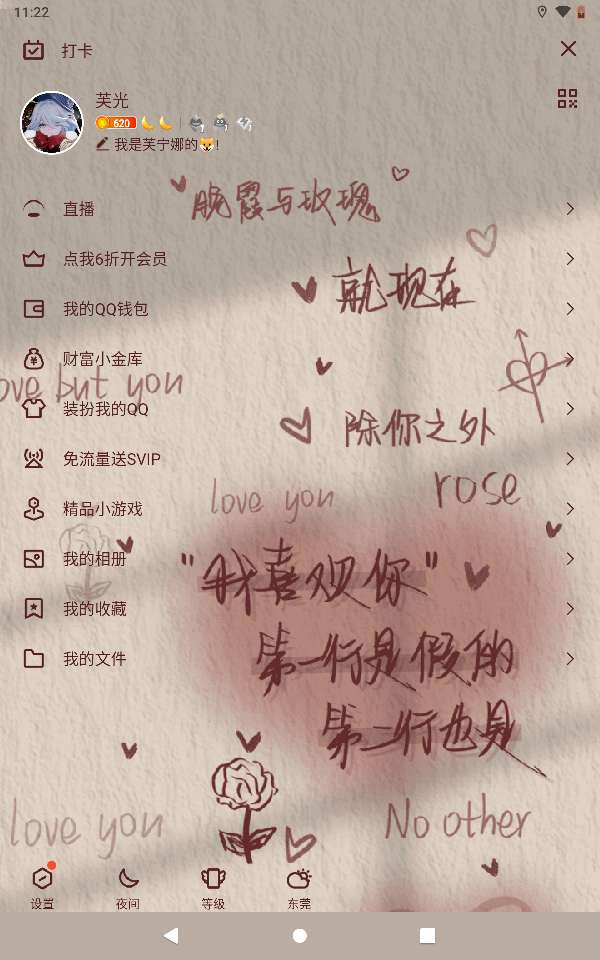 11:22
打卡
芙光
620
我是芙宁娜的🦊!
晚霞与玫瑰
直播
点我6折开会员
就现在
我的QQ钱包
财富小金库
love but you
装扮我的QQ
除你之外
免流量送SVIP
love you
rose
精品小游戏
我的相册
"我喜欢你"
我的收藏
第一行是假的
我的文件
第二行也是
love you
No other
设置
夜间
等级
东莞